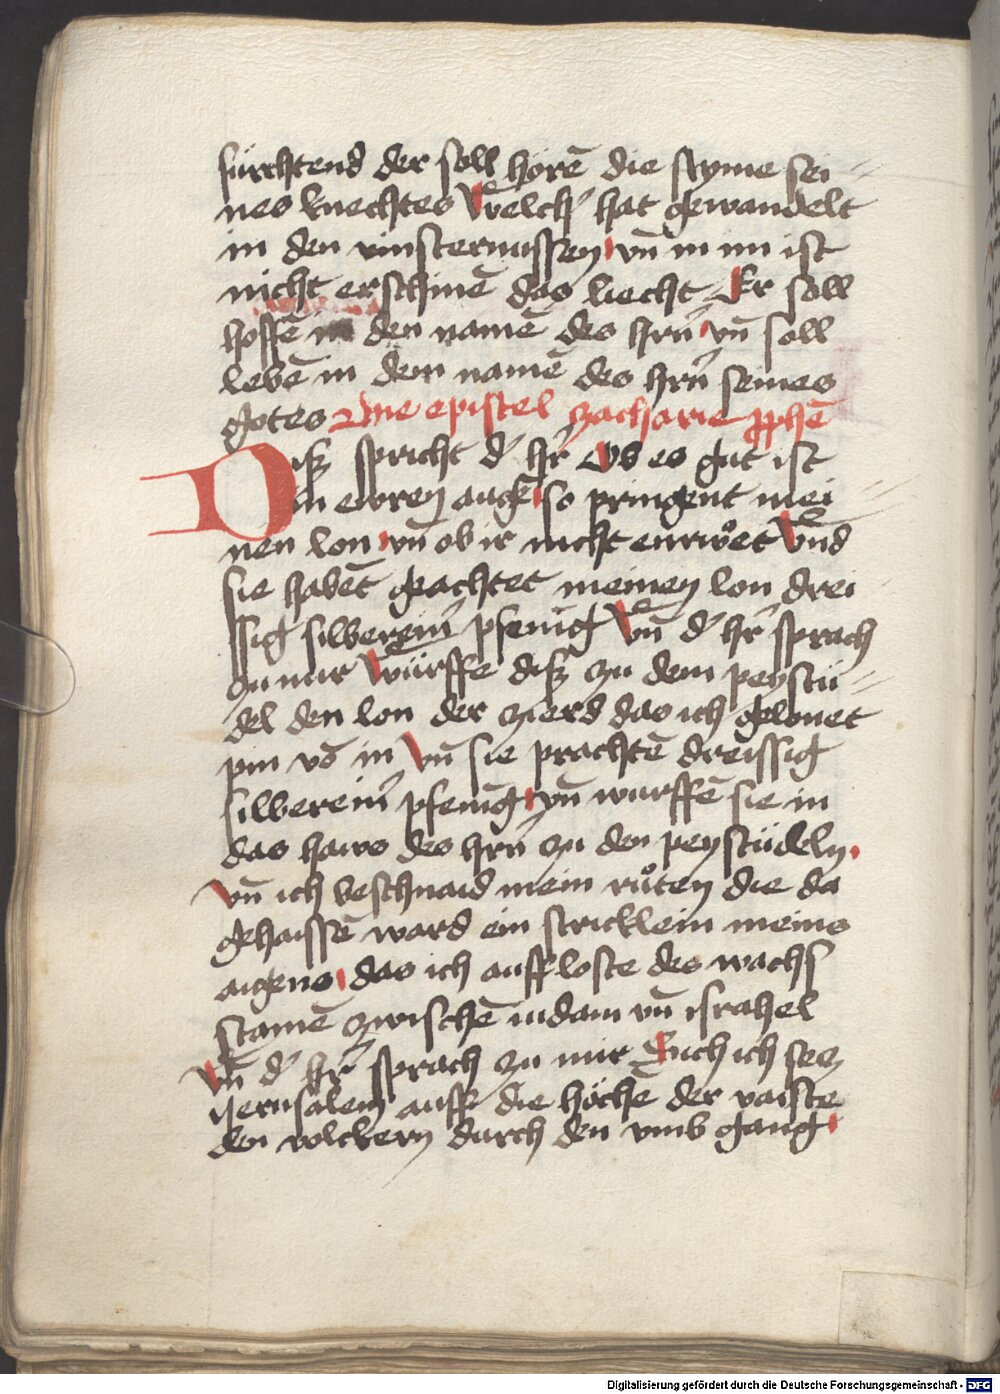 fürchtend der soll hörē die styme sei⸗
nes knechtes Welch' hat gewandelt
in den vinsternussen vn̄ in im ist
nicht erschinē das liecht Er soll
hoffē in den namē des hr̄n vn̄ soll
lebē in dem namē des hr̄n seines
gotes Die epistel zacharie pphē
Diß spricht d' hr̄ Ob es gut ist
in ewren augē so pringent mei⸗
nen lon vn̄ ob ir nicht enrwͦet Vnd
sie habēt geachtet meinen lon drei
ssig silberein' pfenig Vn̄ d' hr̄ sprach
zu mir Würffe diß zu dem peystü⸗
del den lon der zierd das ich gelonet
pin vō in Vn̄ sie prachtē dreissig
silberein' pfenig vn̄ wurffē sie in
das haws des hr̄n zu den peystüdeln
Vn̄ ich beschnaid mein růten die da
gehaissē ward ein stricklein meins
aigens das ich auffloste des wachs
stamē zwischē iudam vn̄ israhel
Vn̄ d' hr̄ sprach zu mir Sich ich secz
iherusalem auff die höche der vaiste
den volckern durch den vmb gang
Digitalisierung gefördert durch die Deutsche Forschungsgemeinschaft - DFG